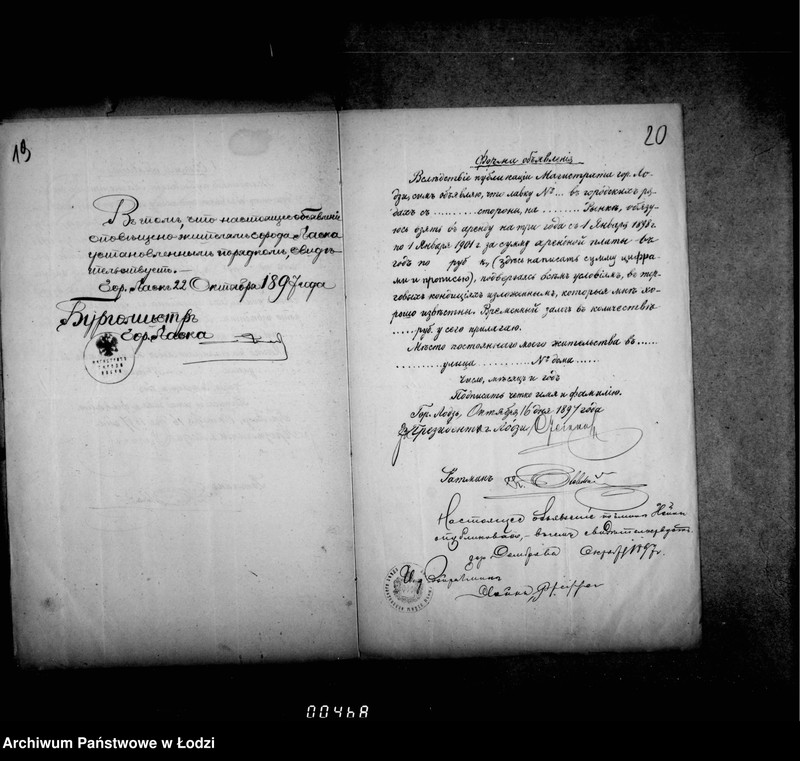 19
Въ томъ, что настоящее объявленіе
оповѣщено жителямъ города Ласка
установленнымъ порядкомъ, свидѣ-
тельствуетъ.—
Гор. Ласкъ 22 Октября 1897 года
Бургомистръ
Гор. Ласка
МАГИСТРАТЪ
ГОРОДА
20
Форма объявленія
Вслѣдствіе публикаціи Магистрата гор. Ло-
дзи, симъ объявляю, что лавку № ... въ городскихъ ря-
дахъ съ ........ стороны, на ........ Рынкѣ, обязу-
юся взять въ аренду на три года съ 1 Января 1898 г.
по 1 Января 1901 г за сумму арендной платы въ
годъ по руб к, (здѣсь написать сумму цифра-
ми и прописью), подвергаясь всѣмъ условіямъ, въ тор-
говыхъ кондиціяхъ изложеннымъ, которыя мнѣ хо-
рошо извѣстны. Временный залогъ въ количествѣ
..... руб. у сего прилагаю.
Мѣсто постояннаго моего жительства въ ......
.......... улица .......... № дома ......
Число, мѣсяцъ и годъ
Подписать четко имя и фамилію.
Гор. Лодзь, Октября 16 дня 1897 года
Президентъ г. Лодзи
Ратманъ
Настоящее объявленіе
опубликовано, - въ чемъ свидѣтельствуетъ.
дер. Домброва 1897 г.
Pfeiffer
0046A
Archiwum Państwowe w Łodzi